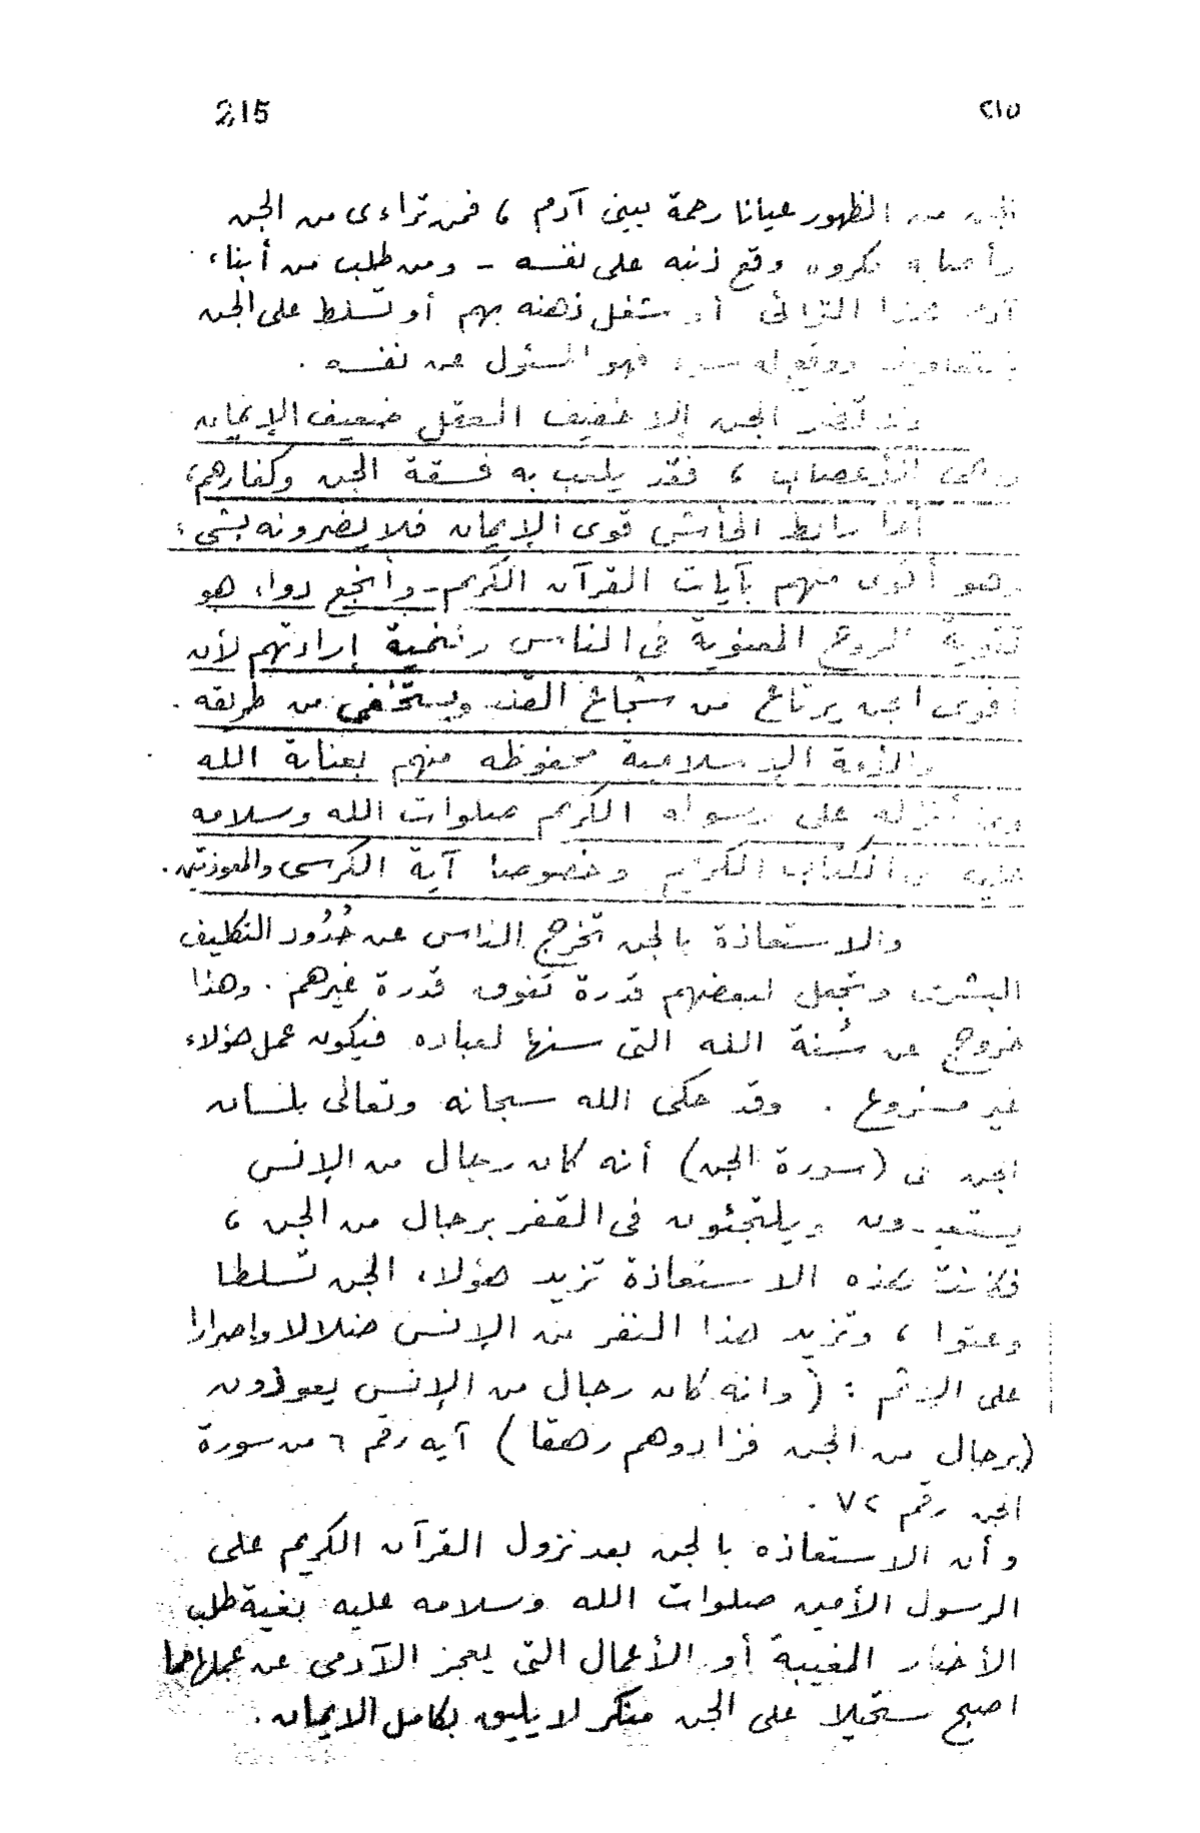 215 ٢١٥
الجن من الظهور عيانا رحمة ببنى آدم ، فمن تراءى من الجن
وأصابه مكروه وقع ذنبه على نفسه - ومن طلب من أبناء
آدم هذا الترائى أو شغل ذهنه بهم أو تسلط على الجن
ووقع له سوء فهو المسئول عن نفسه .
ولا تضر الجن إلا خفيف العقل ضعيف الإيمان
واهى الأعصاب ، فقد يلعب به فسقة الجن وكفارهم ،
أما رابط الجأش قوى الإيمان فلا يضرونه بشىء
وهو أقوى منهم بآيات القرآن الكريم - وأنجع دواء هو
تقوية الروح المعنوية فى الناس وتنمية إرادتهم لأن
أقوى الجن يرتاع من شجاع القلب ويستخفى من طريقه .
والأمة الإسلامية محفوظه منهم بعناية الله
وبما أنزله على رسوله الكريم صلوات الله وسلامه
عليه من الكتاب الكريم وخصوصا آية الكرسى والمعوذتين .
والاستعاذة بالجن تخرج الناس عن حُدُود التكليف
البشرى وتجعل لبعضهم قدرة تفوق قدرة غيرهم . وهذا
خروج عن سُنة الله التى سنها لعباده فيكون عمل هؤلاء
غير مشروع . وقد حكى الله سبحانه وتعالى بلسان
الجن فى (سورة الجن) أنه كان رجال من الإنس
يستعيذون ويلتجئون فى القفر برجال من الجن ،
فكانت هذه الاستعاذة تزيد هؤلاء الجن تسلطا
وعتوا ، وتزيد هذا النفر من الإنس ضلالا وإصرارا
على الإثم : (وانه كان رجال من الإنس يعوذون
(برجال من الجن فزادوهم رهقا) آيه رقم ٦ من سورة
الجن رقم ٧٢ .
وأن الاستعاذه بالجن بعد نزول القرآن الكريم على
الرسول الأمين صلوات الله وسلامه عليه بغية طلب
الأخبار المغيبة أو الأعمال التى يعجز الآدمى عن عملها مما
اصبح مستحيلا على الجن منكر لا يليق بكامل الايمان .